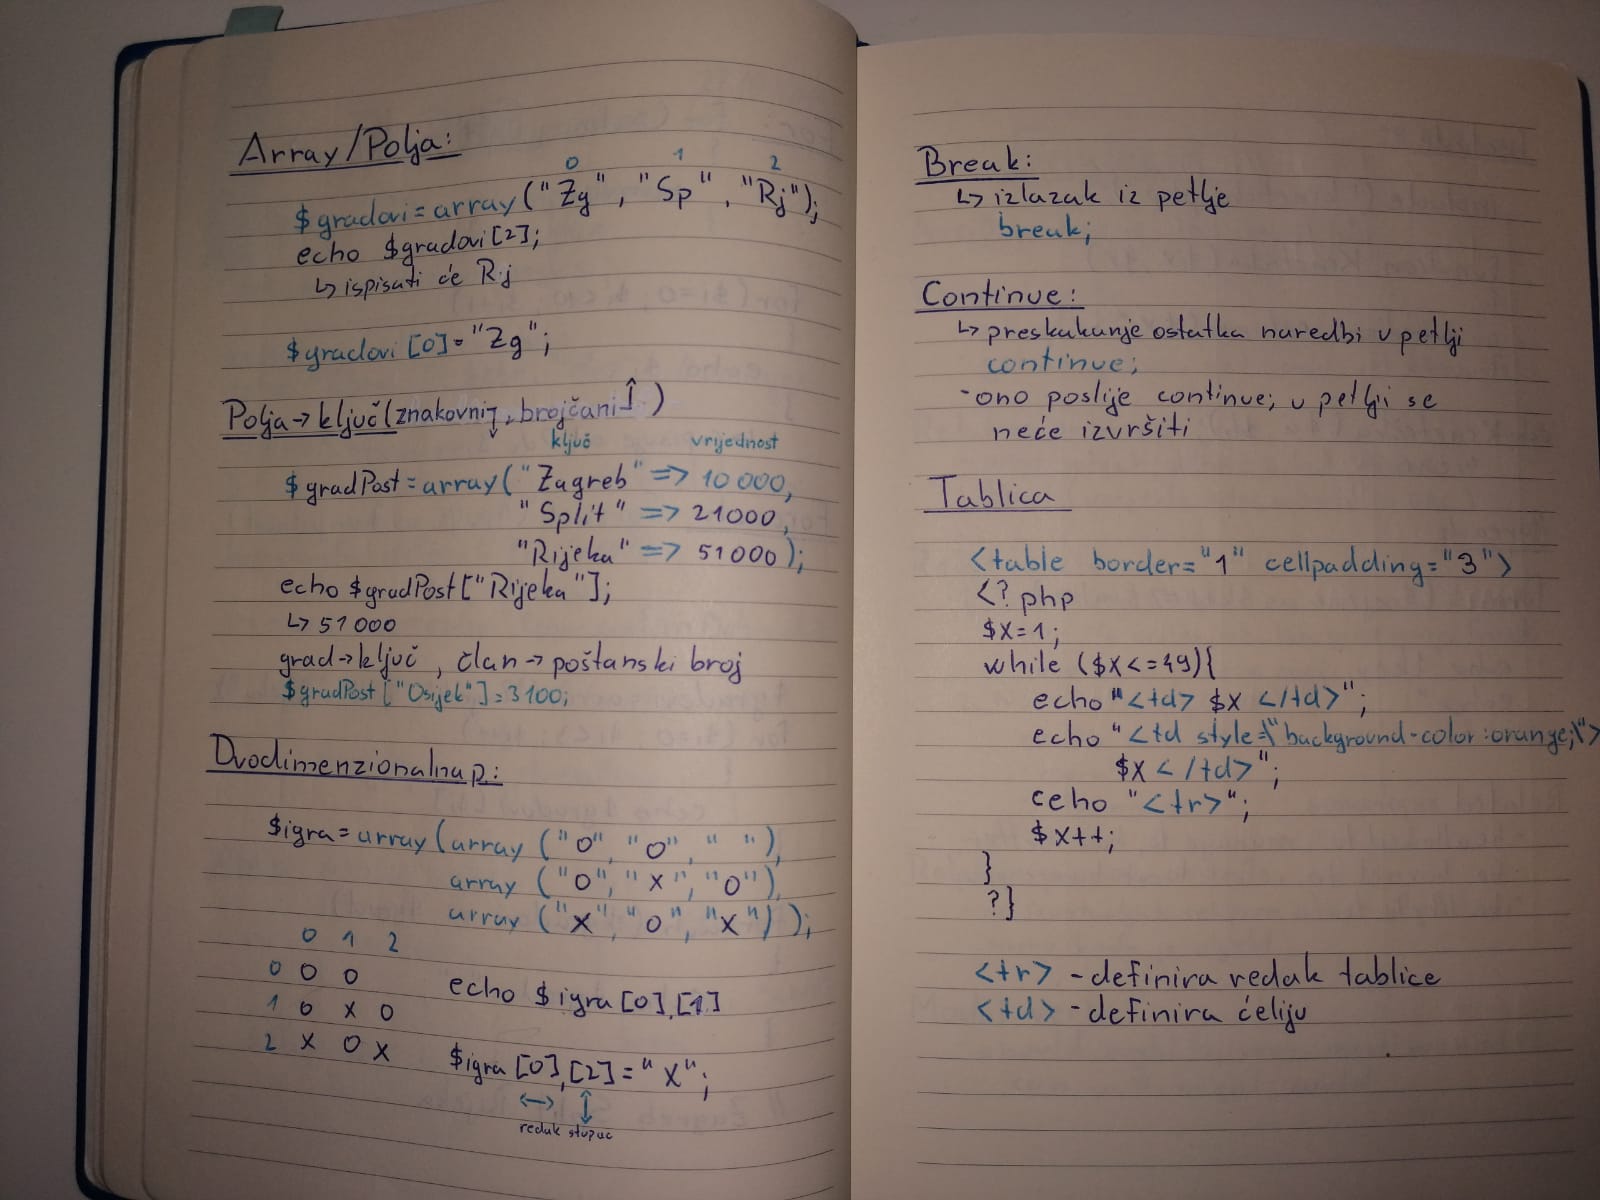 Array/Polja:
0 1 2
$gradovi=array("Zg", "Sp", "Rj");
echo $gradovi[2];
↳ ispisati će Rj
$gradovi[0]="Zg";
Polja→ključ(znakovni↴, brojčani↑)
ključ vrijednost
$gradPost=array("Zagreb" => 10 000,
"Split" => 21000,
"Rijeka" => 51000);
echo $gradPost["Rijeka"];
↳ 51000
grad→ključ, član→poštanski broj
$gradPost["Osijek"]=3100;
Dvodimenzionalna p.:
$igra=array(array("O", "O", " "),
array("O", "X", "O"),
array("X", "O", "X"));
0 1 2
0 O O
1 O X O
2 X O X
echo $igra[0],[1]
$igra[0],[2]="X";
↔ ↕
redak stupac
Break:
↳ izlazak iz petlje
break;
Continue:
↳ preskakunje ostatka naredbi u petlji
continue;
-ono poslije continue; u petlji se
neće izvršiti
Tablica
<table border="1" cellpadding="3">
<?php
$x=1;
while ($x<=49){
echo "<td> $x </td>";
echo "<td style=\"background-color:orange;\">
$x </td>";
echo "<tr>";
$x++;
}
?}
<tr> - definira redak tablice
<td> - definira ćeliju